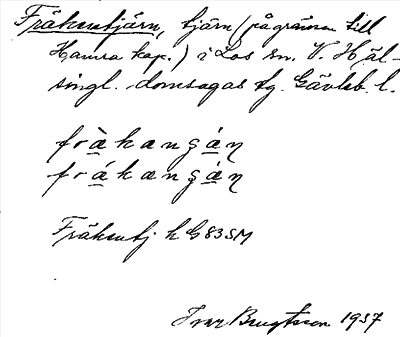 Fräkentjärn, tjärn (på gränsen till
Hamra kap.) i Los sn. V. Häl-
singl. domsagas tg. Gävleb. l.
fràkangán
frákangán
Fräkentj. k G83SM
Ivar Bengtsson 1937